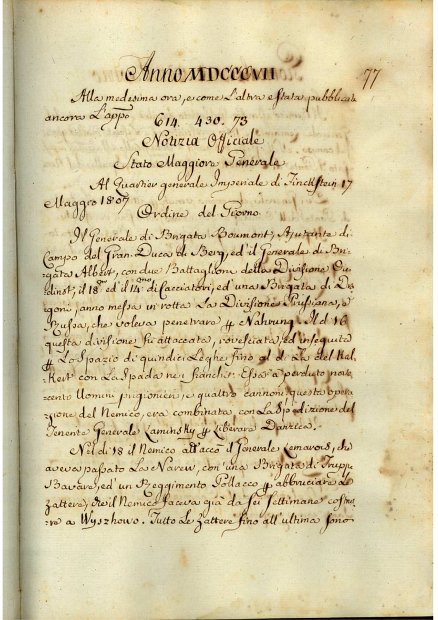 Anno MDCCCVII 77
Alla medesima ora, e come L'altra e stata pubblicata
ancora L'app.o
614. 430. 73
Notizia Officiale
Stato Maggiore Generale
Al Quartier generale Imperiale di Finckstein 17
Maggio 1807
Ordine del Giorno
Il Generale di Brigata Boumont, Ajutante di
Campo del Gran Duca di Berg, ed il Generale di Bri-
gata Albert, con due Battaglioni della Divisione Ou-
dinot, il 18.mo, e il 14.mo di Cacciatori, ed una Brigata di Dra
goni, anno messa in rotta La Divisione Prussiana, e
Russa, che voleva penetrare p Nahrung. Il dì 16
questa divisione fu attaccata, rovesciata, ed inseguita
p Lo Spazio di quindici Leghe fino al di
con La Spada ne i fianchi. Essa à perduto nove
cento Uomini prigionieri, e quattro cannoni; questa opera
zione del Nemico, era combinata con La Spedizione del
Tenente Generale Kaminsky p Liberare Danzica.
Nel dì 13 il Nemico attaccò il Generale Lemarois, che
aveva passato La Narew, con una Brigata di Truppe
Bavare, ed un Reggimento Pollacco p abbruciare Le
Zattere, che il Nemico faceva già da sei Settimane costrui
re a Wyszkowo. Tutte Le Zattere fino all'ultima sono